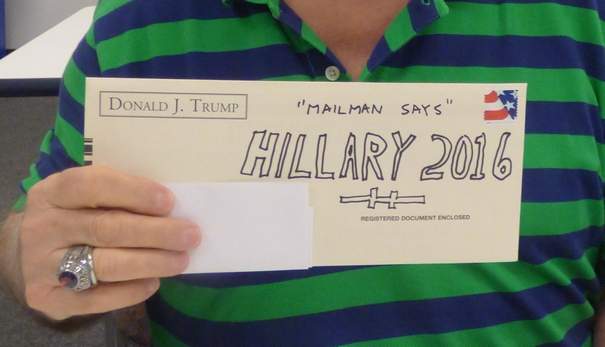 DONALD J. TRUMP
"MAILMAN SAYS"
HILLARY 2016
REGISTERED DOCUMENT ENCLOSED